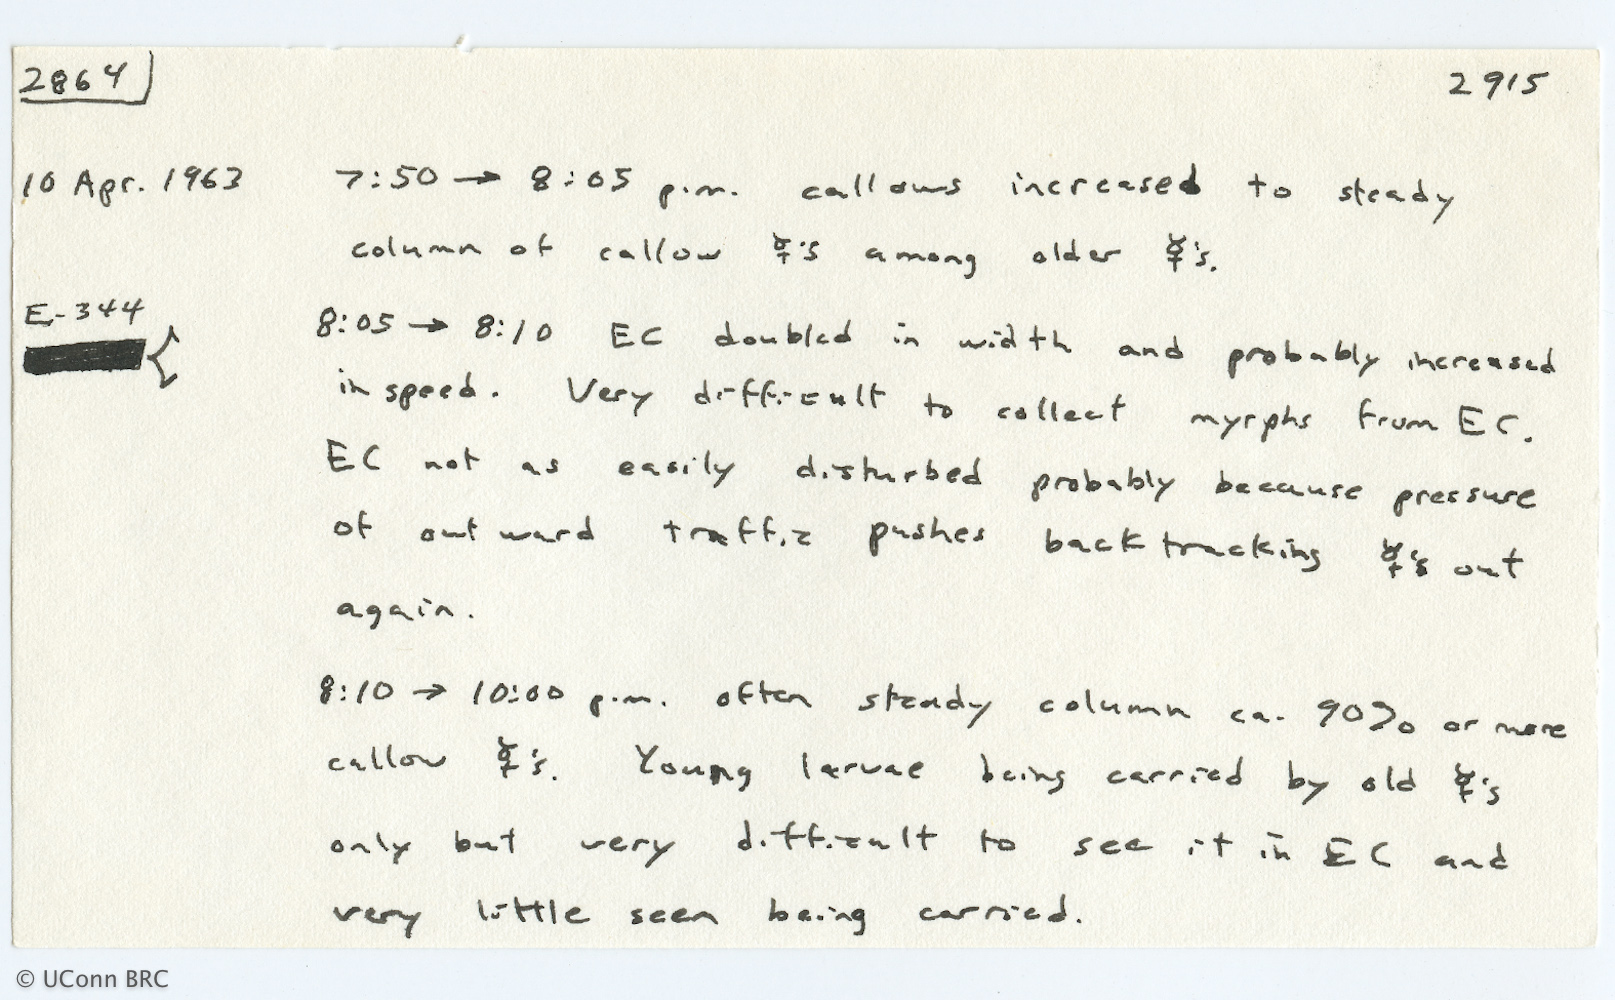 2864 2915
10 Apr. 1963 7:50 → 8:05 p.m. callows increased to steady
column of callow ☿'s among older ☿'s.
E-344
8:05 → 8:10 EC doubled in width and probably increased
in speed. Very difficult to collect myrphs from EC.
EC not as easily disturbed probably because pressure
of outward traffic pushes backtracking ☿'s out
again.
8:10 → 10:00 p.m. often steady column ca. 90% or more
callow ☿'s. Young larvae being carried by old ☿'s
only but very difficult to see it in EC and
very little seen being carried.
© UConn BRC